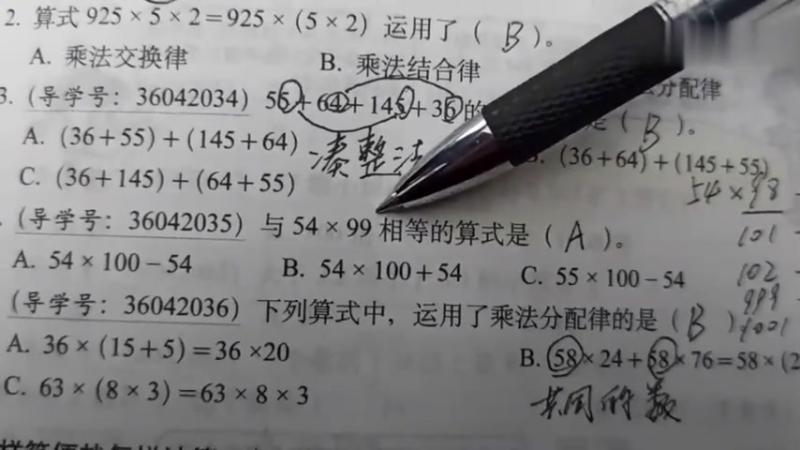 2. 算式 925×5×2=925×(5×2) 运用了( B )。
A. 乘法交换律 B. 乘法结合律 分配律
3. (导学号：36042034) 55+64+145+36的 是( B )。
A. (36+55)+(145+64) 凑整法 B. (36+64)+(145+55)
C. (36+145)+(64+55) 54×98
(导学号：36042035) 与 54×99 相等的算式是( A )。 101
A. 54×100-54 B. 54×100+54 C. 55×100-54 102
999
(导学号：36042036) 下列算式中，运用了乘法分配律的是( B ) 1001
A. 36×(15+5)=36×20 B. 58×24+58×76=58×(2
C. 63×(8×3)=63×8×3 共同的数